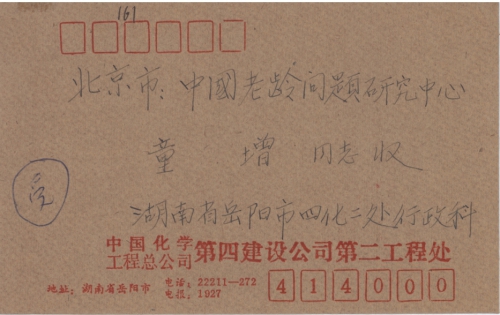 161
北京市：中國老龄问题研究中心
童增 同志收
湖南省岳阳市四化二处行政科
中国化学工程总公司 第四建设公司第二工程处
地址：湖南省岳阳市 电话：22211—272 电报：1927
414000